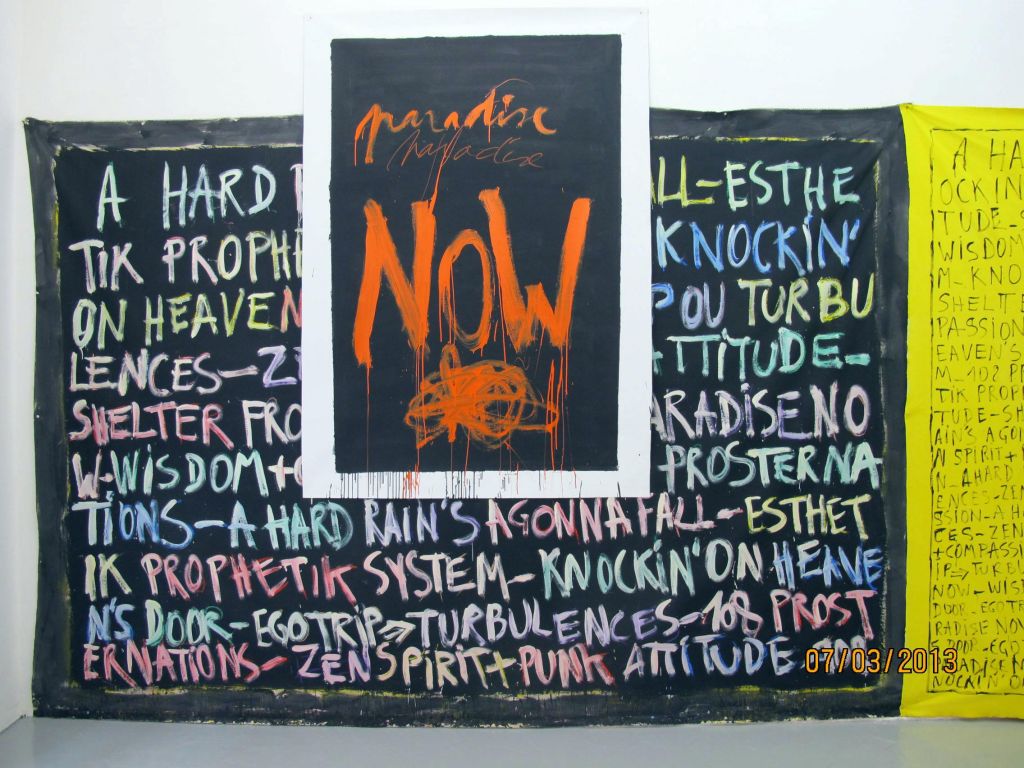 paradise
paradise
NOW
A HARD ALL-ESTHE
TIK PROPHE KNOCKIN'
ON HEAVEN POU TURBU
LENCES-ZE ATTITUDE-
SHELTER FRO ARADISE NO
W-WISDOM+C PROSTERNA
TIONS-A HARD RAIN'S AGONNA FALL-ESTHET
IK PROPHETIK SYSTEM-KNOCKIN' ON HEAVE
N'S DOOR-EGOTRIP⇒TURBULENCES-108 PROST
ERNATIONS-ZEN SPIRIT+PUNK ATTITUDE-108
A HA
OCKIN
TUDE-S
WISDOM
M-KNO
SHELTE
PASSION
EAVEN'S
M-108 PR
TIK PROPH
TUDE-SH
AIN'S AGON
N SPIRIT+P
N-A HARD
ENCES-ZEN
SSION-A HA
CES-ZEN
+COMPASSI
IP⇒TURBU
NOW-WISD
DOOR-EGOTR
RADISE NOW
DOOR-EGO
RADISE NO
NOCKIN' ON
07/03/2013